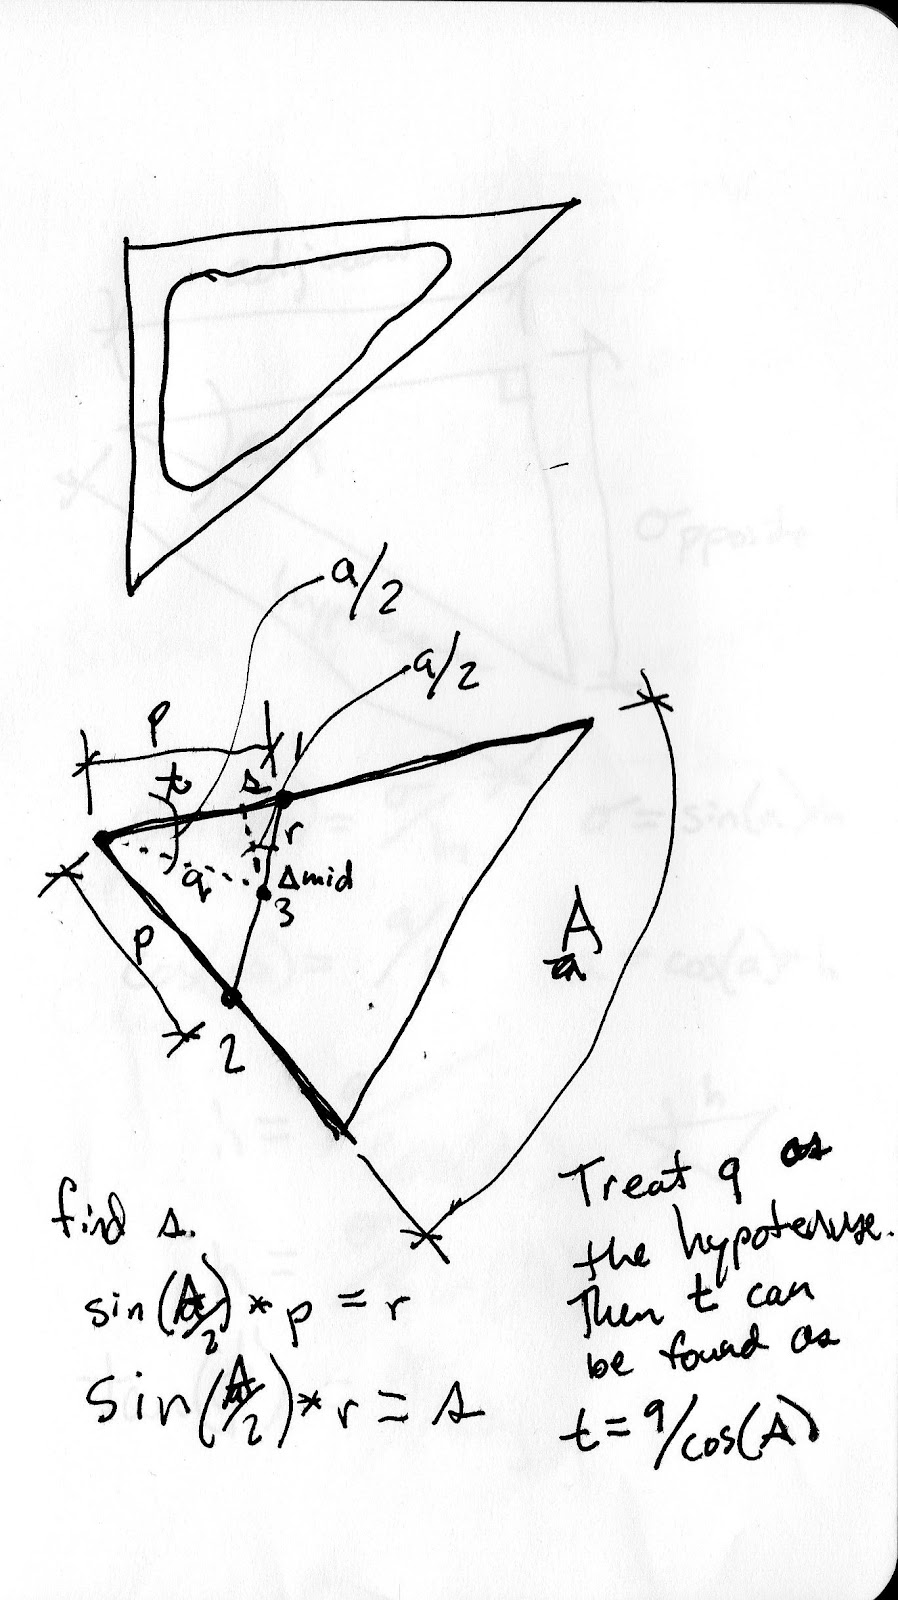 a/2
a/2
p
1
t
s
r
q
smid
3
p
2
A
find s.
sin(A/2) * p = r
sin(A/2) * r = s
Treat q as
the hypotenuse.
Then t can
be found as
t = q/cos(A)